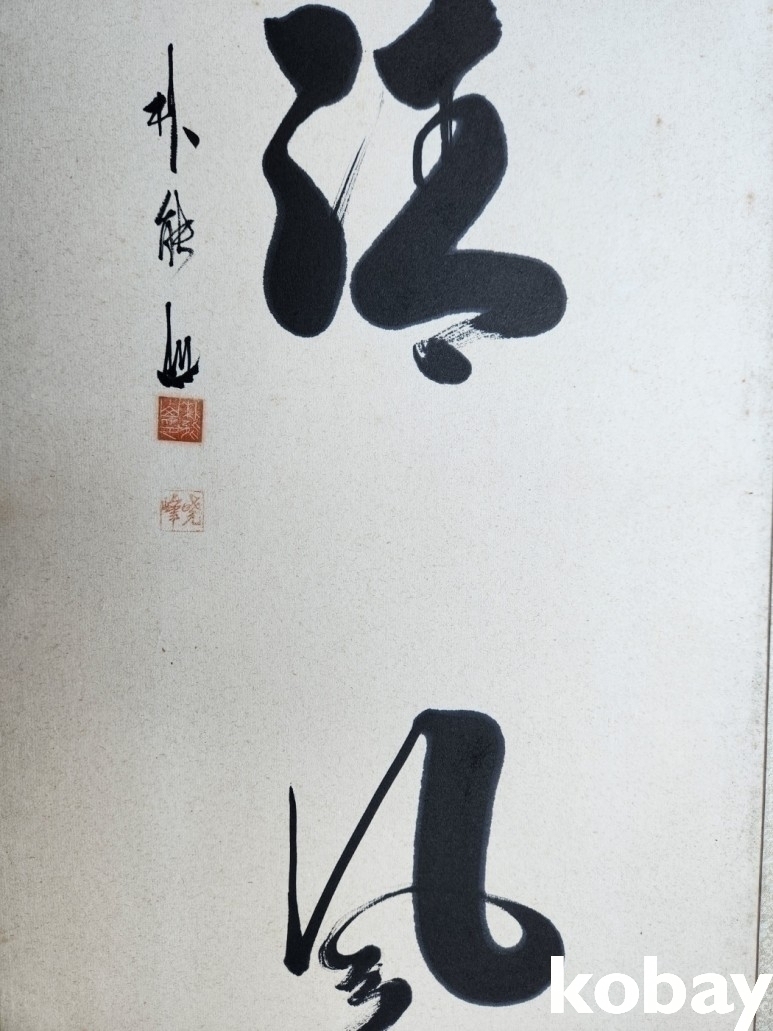 清風
朴能山
kobay